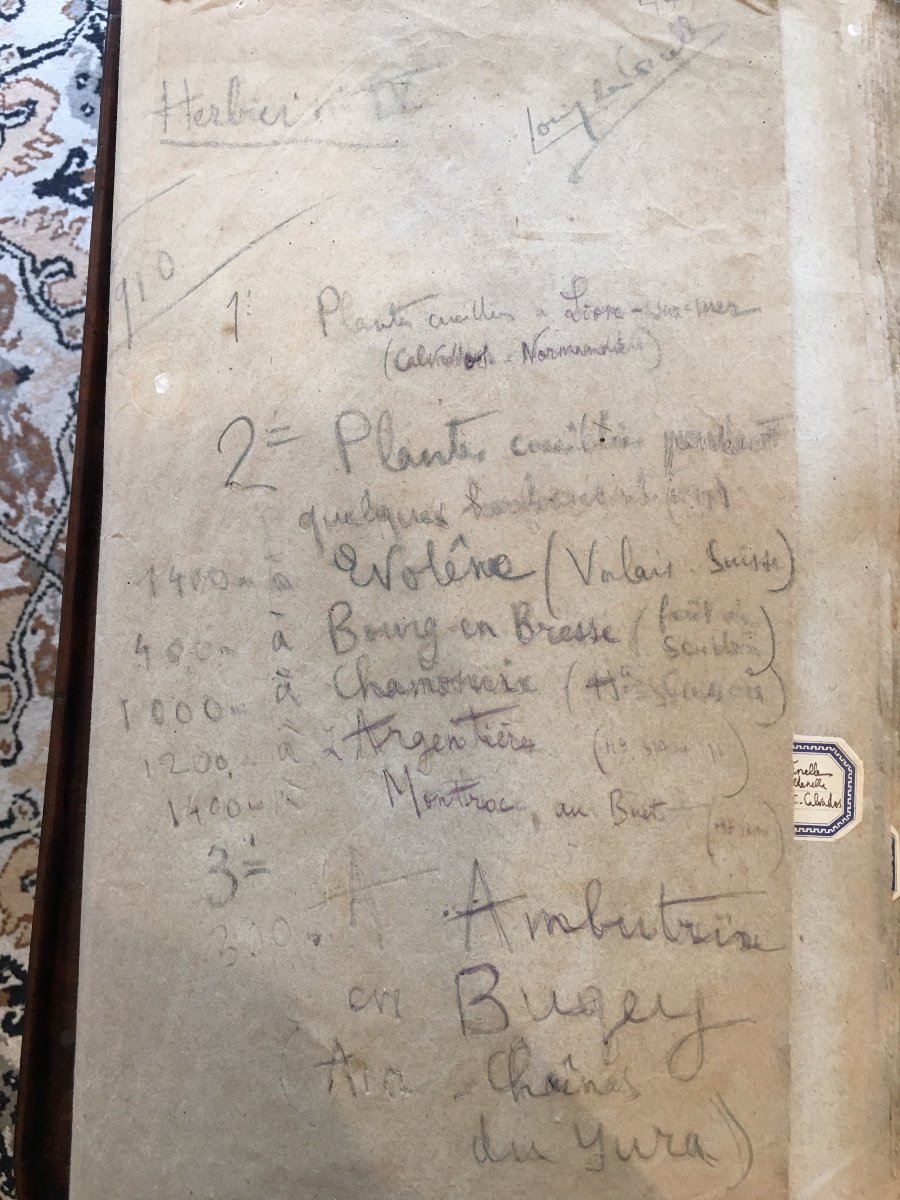 Herbier IV
910
1° Plantes cueillies à Lion-sur-mer
(Calvados - Normandie)
2= Plantes cueillies pendant
quelques herborisations
1400m à Evolène (Valais - Suisse)
400m à Bourg-en-Bresse (forêt de
Seillon)
1000m à Chamonix (Hte Savoie)
1200m à Argentière (Hte Savoie)
1400m Montroc au Buet
3= A Ambutrix
300
en Bugey
(Ain - Chaînes
du Jura)